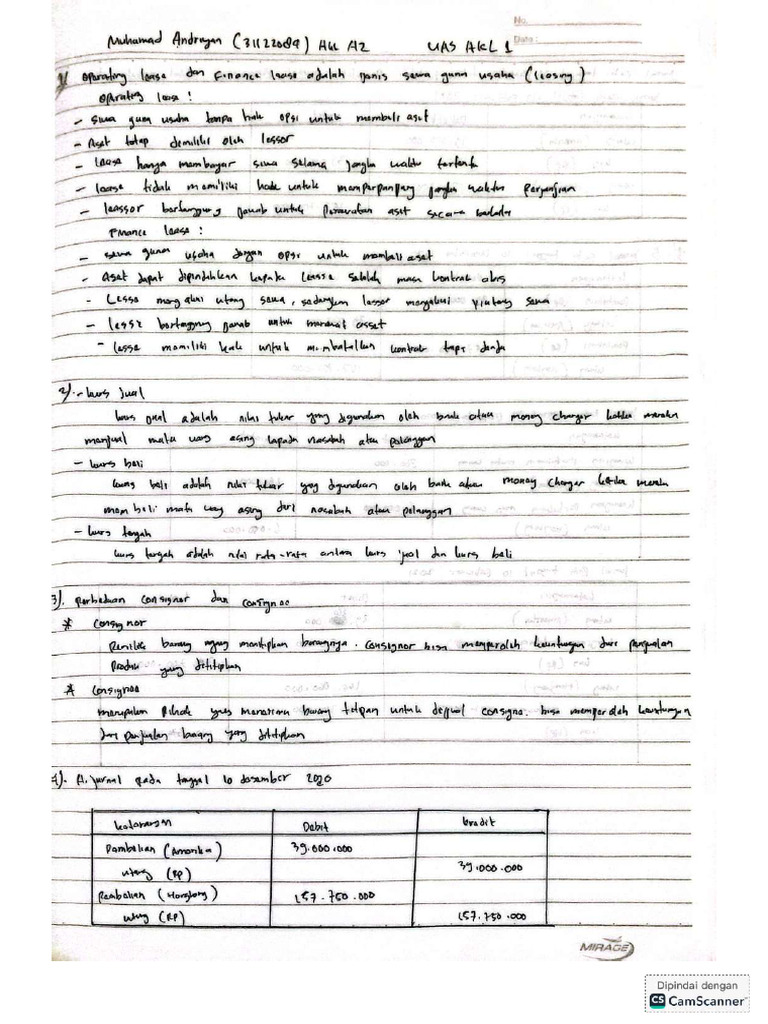 No.
Date:
Muhamad Andriyan (31122089) AKL A2 UAS AKL 1
1) Operating lease dan Finance lease adalah jenis sewa guna usaha (leasing)
Operating lease :
- Sewa guna usaha tanpa hak opsi untuk membeli aset
- Aset tetap dimiliki oleh lessor
- Lease hanya membayar sewa selama jangka waktu tertentu
- lease tidak memiliki hak untuk memperpanjang jangka waktu perjanjian
- leassor bertanggung jawab untuk perawatan aset secara berkala
Finance lease :
- sewa guna usaha dengan opsi untuk membeli aset
- Aset dapat dipindahkan kepada lessee setelah masa kontrak abis
- Lesse mengakui utang sewa, sedangkan lessor mengakui piutang sewa
- lesse bertanggung jawab untuk merawat asset
- lesse memiliki hak untuk membatalkan kontrak tapi denda
2). - kurs jual
kurs jual adalah nilai tukar yang digunakan oleh bank atau money changer ketika mereka
menjual mata uang asing kepada nasabah atau pelanggan
- kurs beli
kurs beli adalah nilai tukar yang digunakan oleh bank atau money changer ketika mereka
membeli mata uang asing dari nasabah atau pelanggan
- kurs tengah
kurs tengah adalah nilai rata-rata antara kurs jual dan kurs beli
3). perbedaan consignor dan consignee
* Consignor
Pemilik barang yang menitipkan barangnya. Consignor bisa memperoleh keuntungan dari penjualan
Produk yang dititipkan
* Consignee
merupakan pihak yang menerima barang titipan untuk dijual consigne. bisa memperoleh keuntungan
dari penjualan barang yang dititipkan
4). A. jurnal pada tanggal 10 desember 2020
keterangan Debit kredit
Pembelian (Amerika) 39.000.000
utang (RP) 39.000.000
Pembelian (Hongkong) 157.750.000
utang (RP) 157.750.000
MIRAGE
Dipindai dengan
CS CamScanner